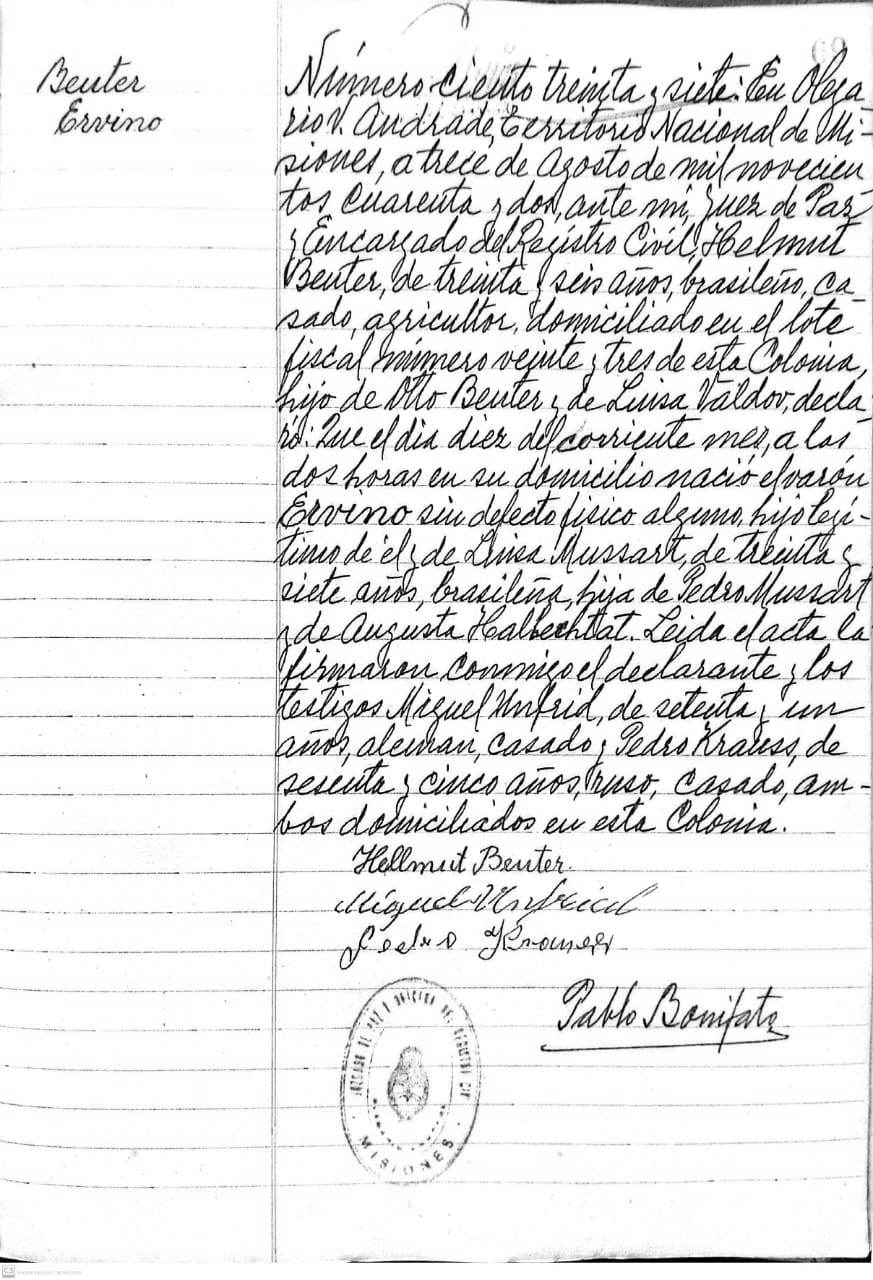 69
Beuter
Ervino
Número ciento treinta y siete: En Olega
rio V. Andrade, Territorio Nacional de Mi-
siones, a trece de Agosto de mil novecien
tos cuarenta y dos, ante mi, Juez de Paz
y Encargado del Registro Civil, Helmut
Beuter, de treinta y seis años, brasileño, ca-
sado, agricultor, domiciliado en el lote
fiscal número veinte y tres de esta Colonia,
hijo de Otto Beuter y de Luisa Valdov, decla-
ró: Que el dia diez del corriente mes, a las
dos horas en su domicilio nació el varón
Ervino sin defecto fisico alguno, hijo legi-
timo de él y de Luisa Mussart, de treinta y
siete años, brasileña, hija de Pedro Mussart
y de Augusta Halbechtat. Leida el acta la
firmaron conmigo el declarante y los
testigos Miguel Unfrid, de setenta y un
años, aleman, casado y Pedro Krauss, de
sesenta y cinco años, ruso, casado, am-
bos domiciliados en esta Colonia.
Hellmut Beuter.
Miguel Unfried
Pedro
Pablo Bonifato
JUZGADO DE PAZ Y OFICINA DEL REGISTRO CIVIL
MISIONES
CS